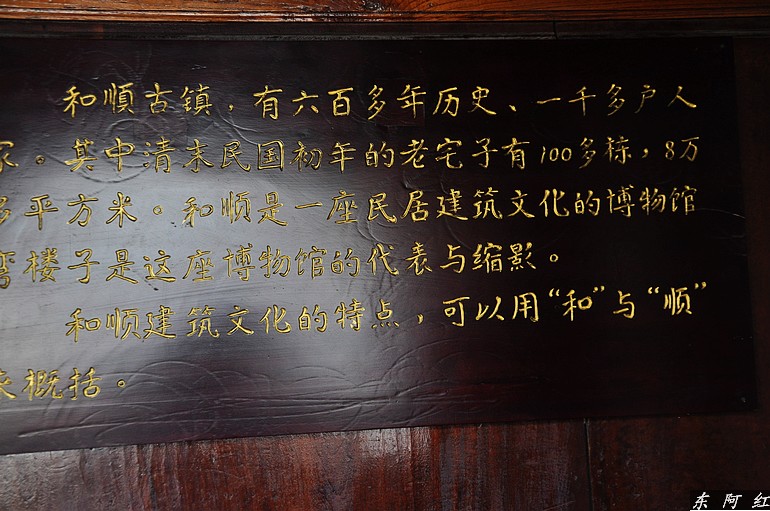 和順古镇，有六百多年历史、一千多户人
家。其中清末民国初年的老宅子有100多栋，8万
多平方米。和顺是一座民居建筑文化的博物馆
弯楼子是这座博物馆的代表与缩影。
和顺建筑文化的特点，可以用“和”与“顺”
来概括。
东阿红